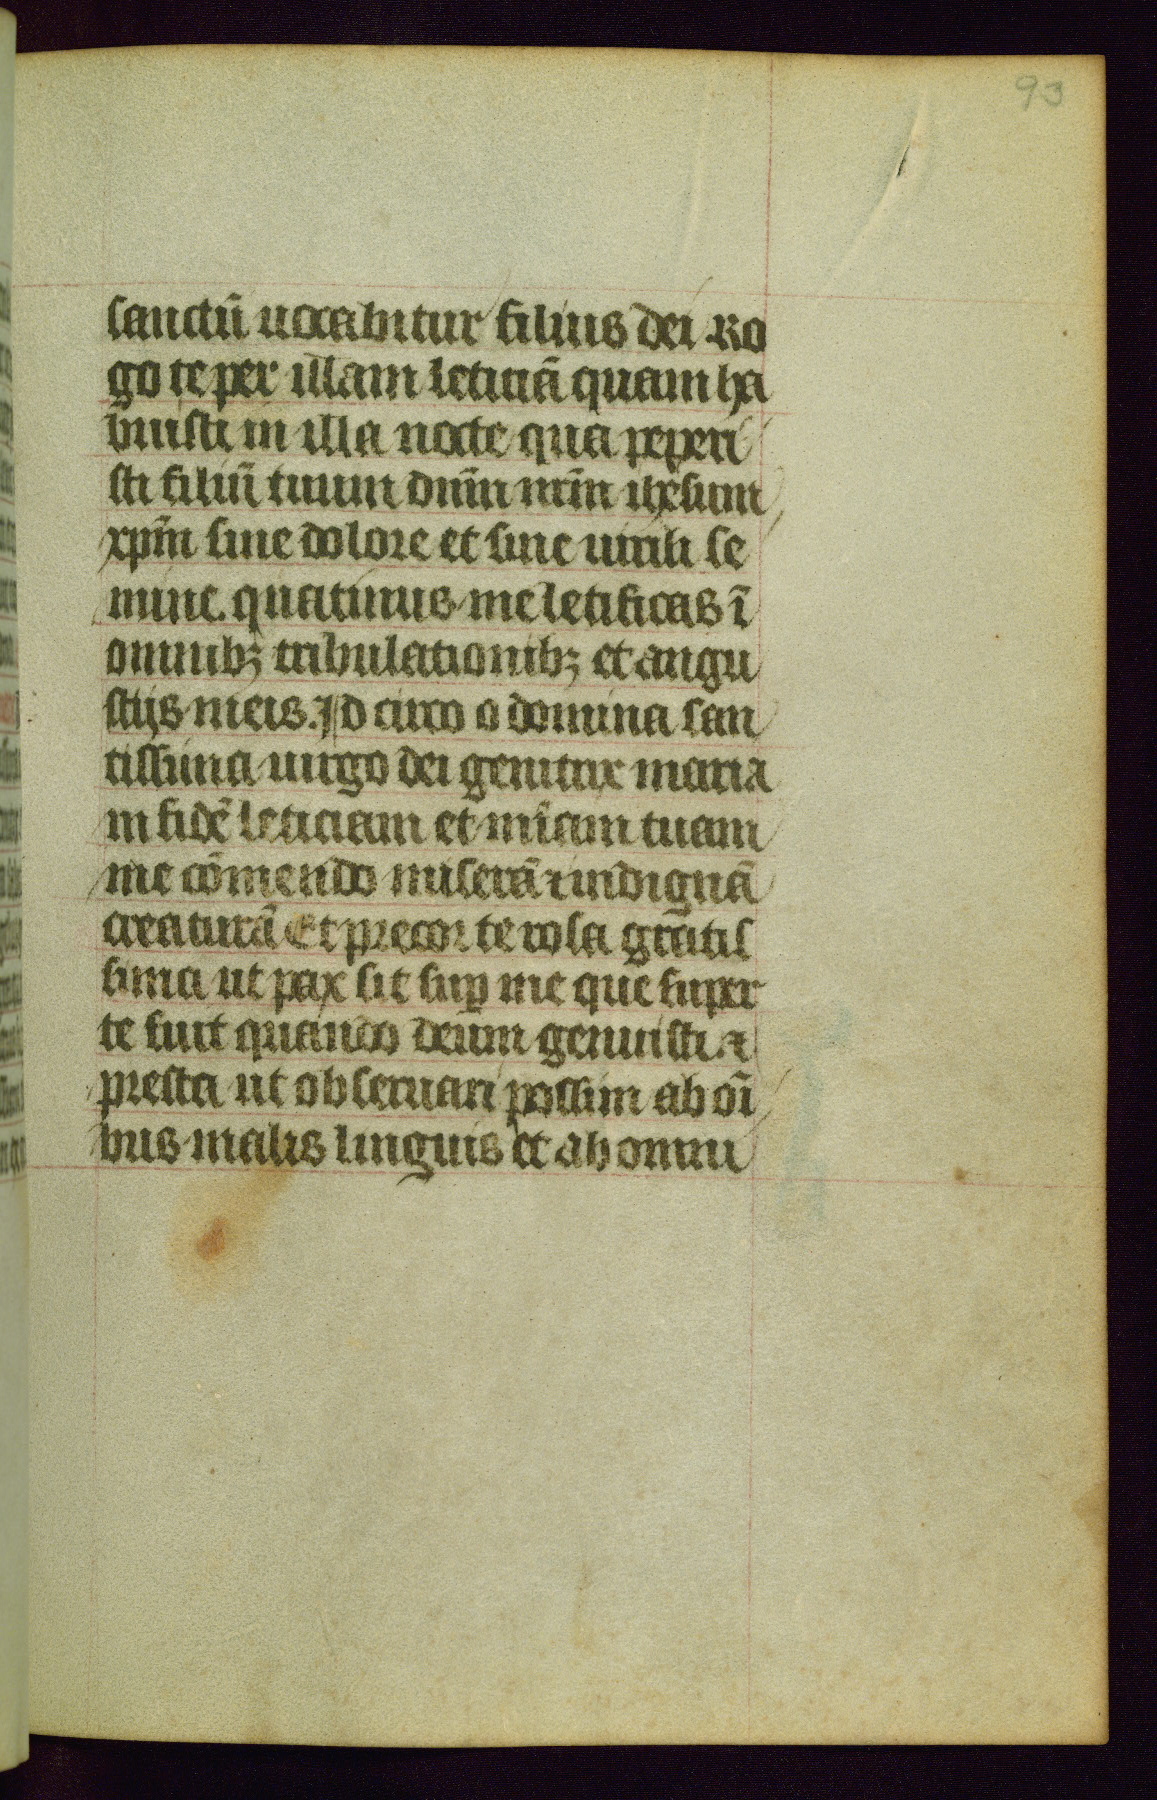 93
sanctū uocabitur filius dei Ro
go te per illam leticiā quam ha
buisti in illa nocte qua peperi
sti filiū tuum dn̄m nr̄m ihesum
xp̄m sine dolore et sine uirili se
mine. quatinus me letificas ī
omnibꝫ tribulationibꝫ et angu
stijs meis. Id circo o domina san
tissima uirgo dei genitrix maria
in fidē leticiam et mīam tuam
me cōmendo miserā ⁊ indignā
creaturā Et precor te rosa grātis
sima ut pax sit suꝑ me que super
te fuit quando deum genuisti a
presta ut obseruari possim ab oī
bus malis linguis et ab omni